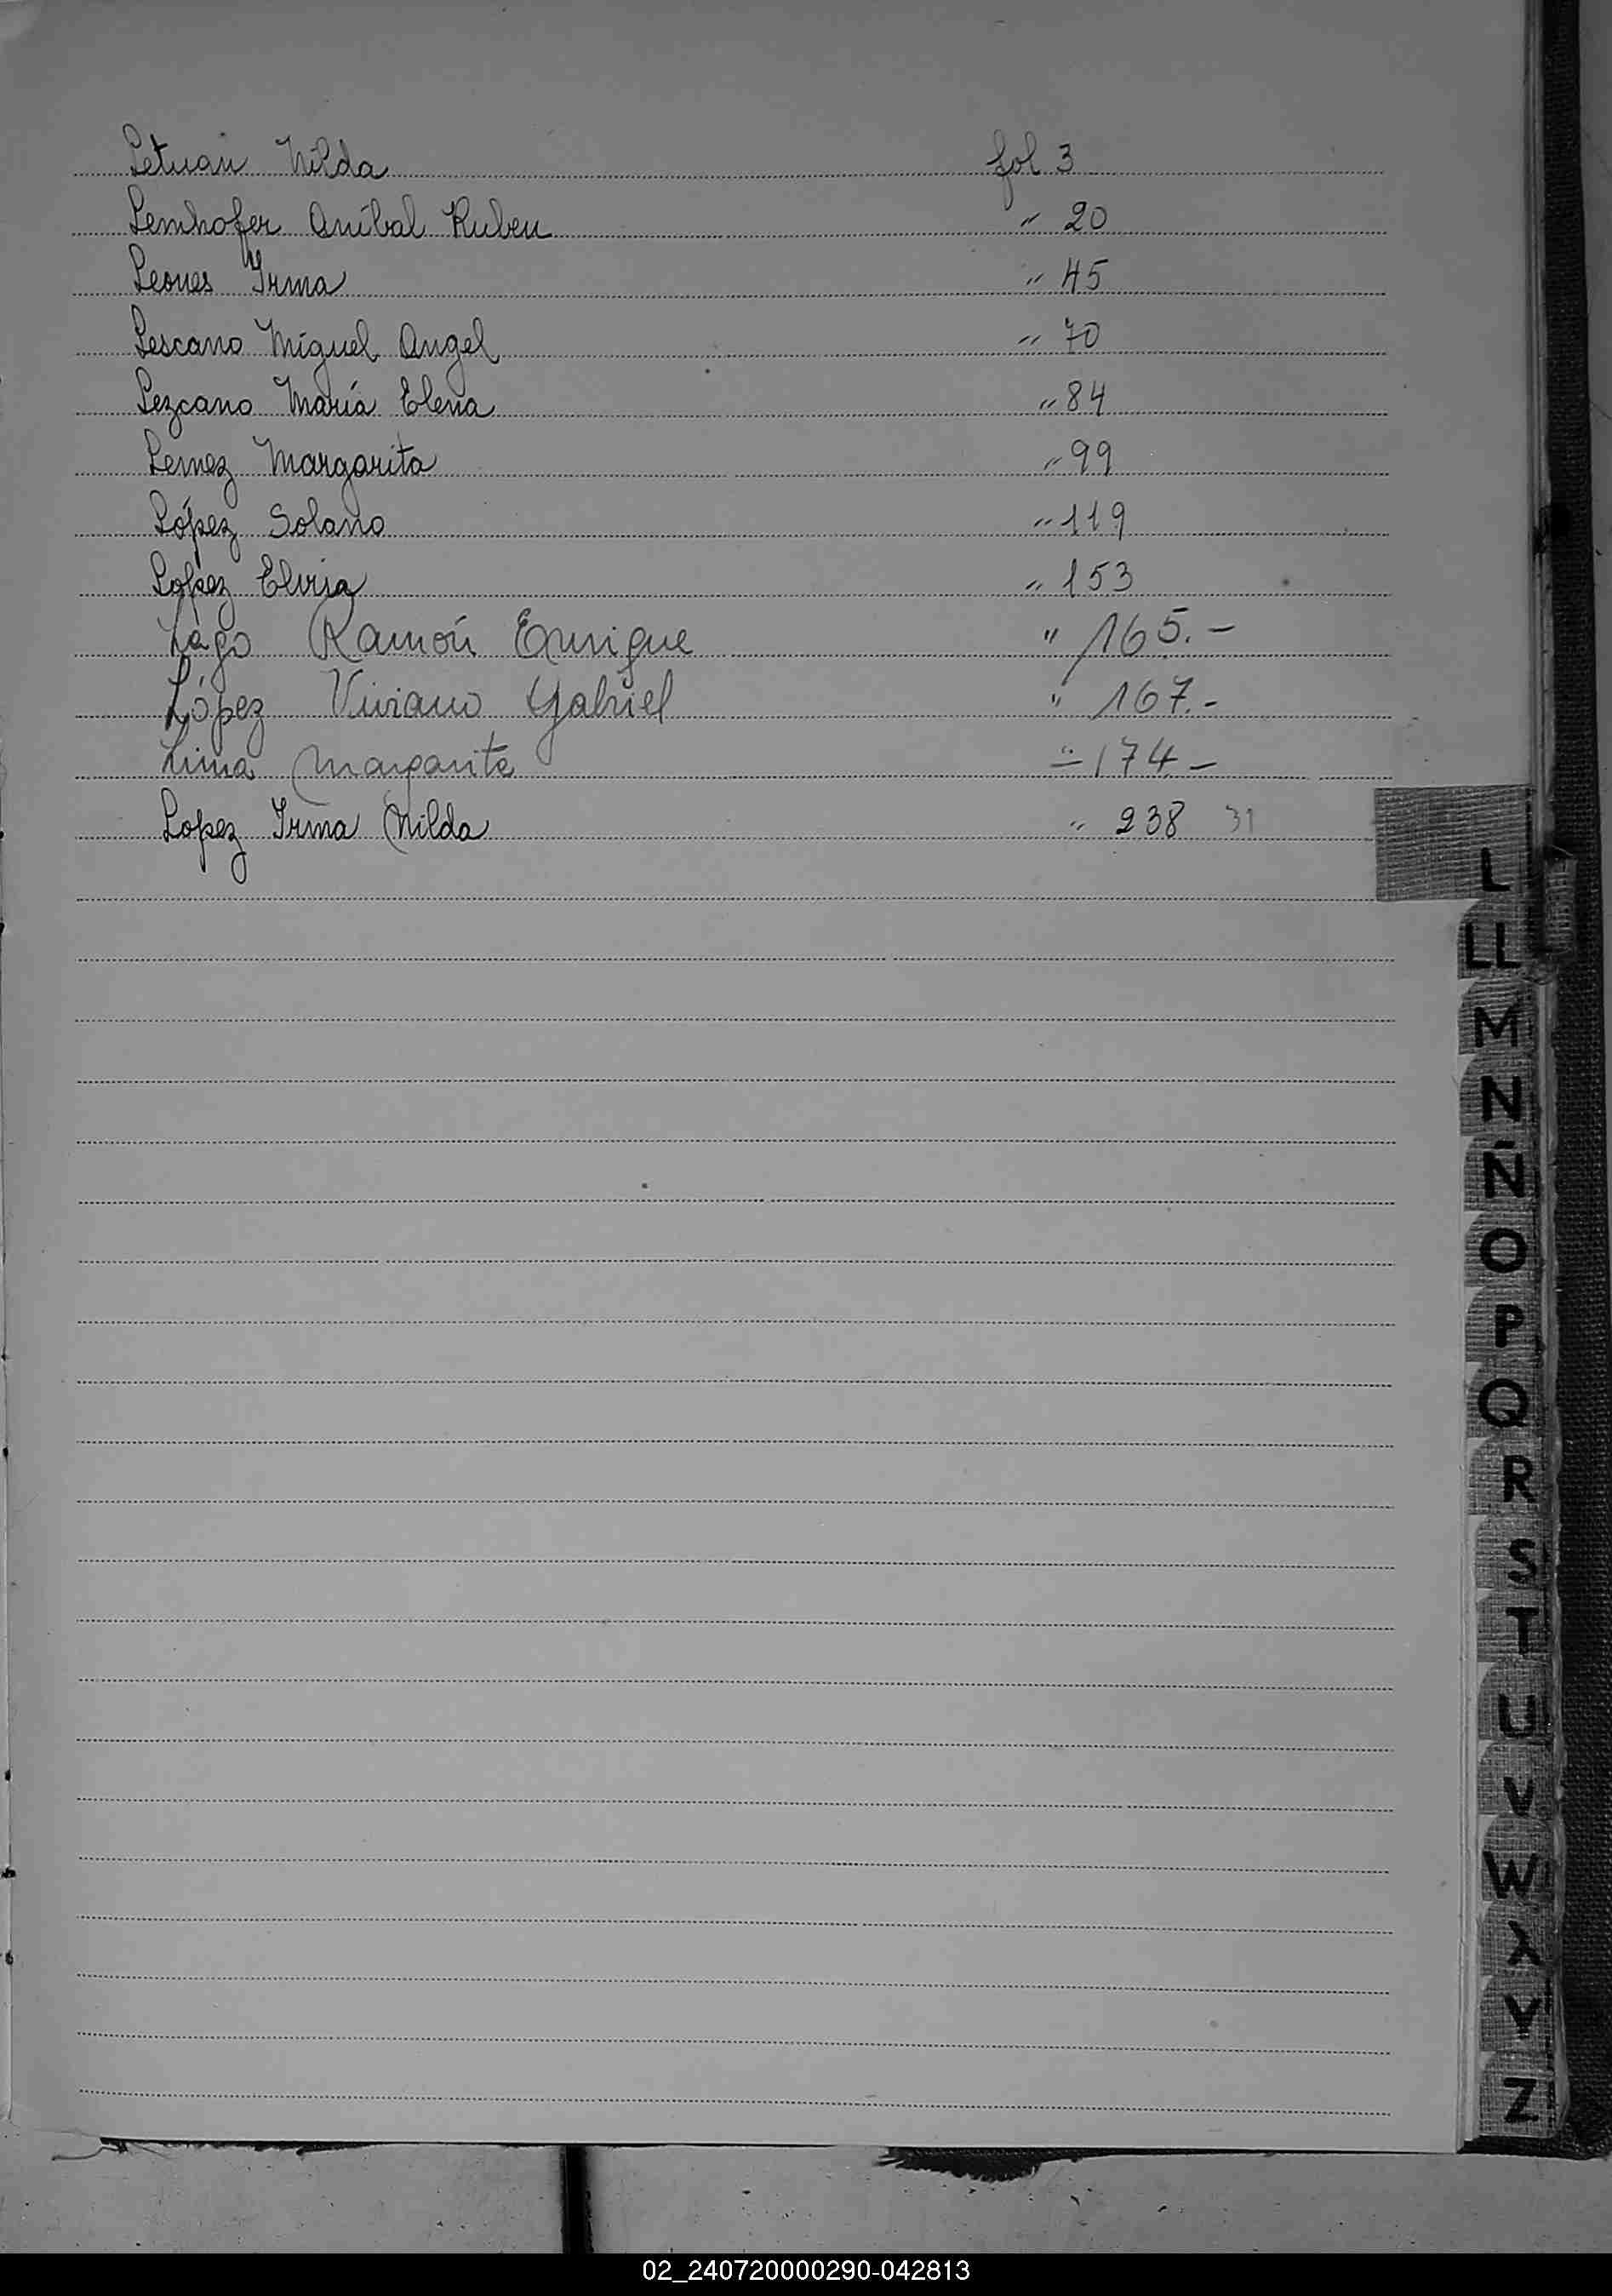 Letuan Nilda fol 3
Lemhofer Aníbal Ruben " 20
Leones Irma " 45
Lescano Miguel Angel " 70
Lezcano María Elena " 84
Lemez Margarita " 99
López Solano " 119
Lopez Elvia " 153
Lago Ramón Enrique " 165.-
López Viviano Gabriel " 167.-
Lima Margarita " 174-
Lopez Irma Nilda " 238 31
L
LL
M
N
Ñ
O
P
Q
R
S
T
U
V
W
X
Y
Z
02_240720000290-042813